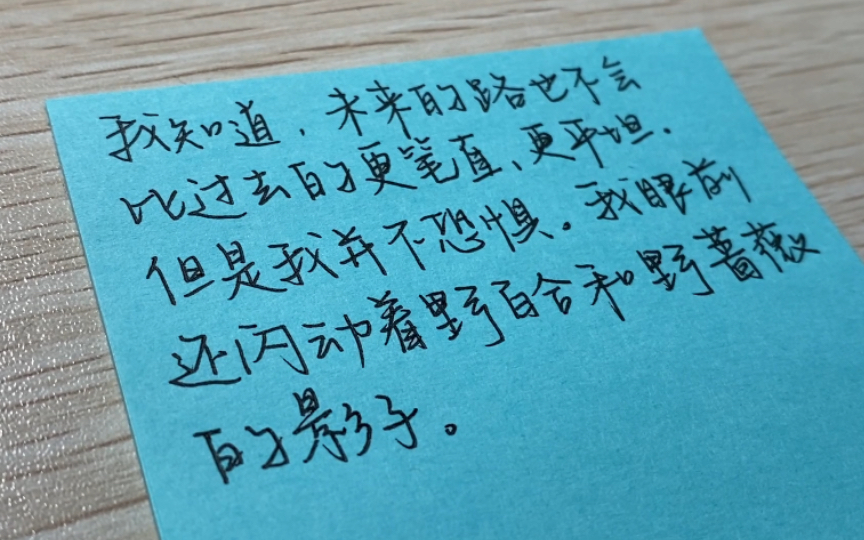 我知道，未来的路也不会
比过去的更笔直、更平坦．
但是我并不恐惧。我眼前
还闪动着野百合和野蔷薇
的影子。